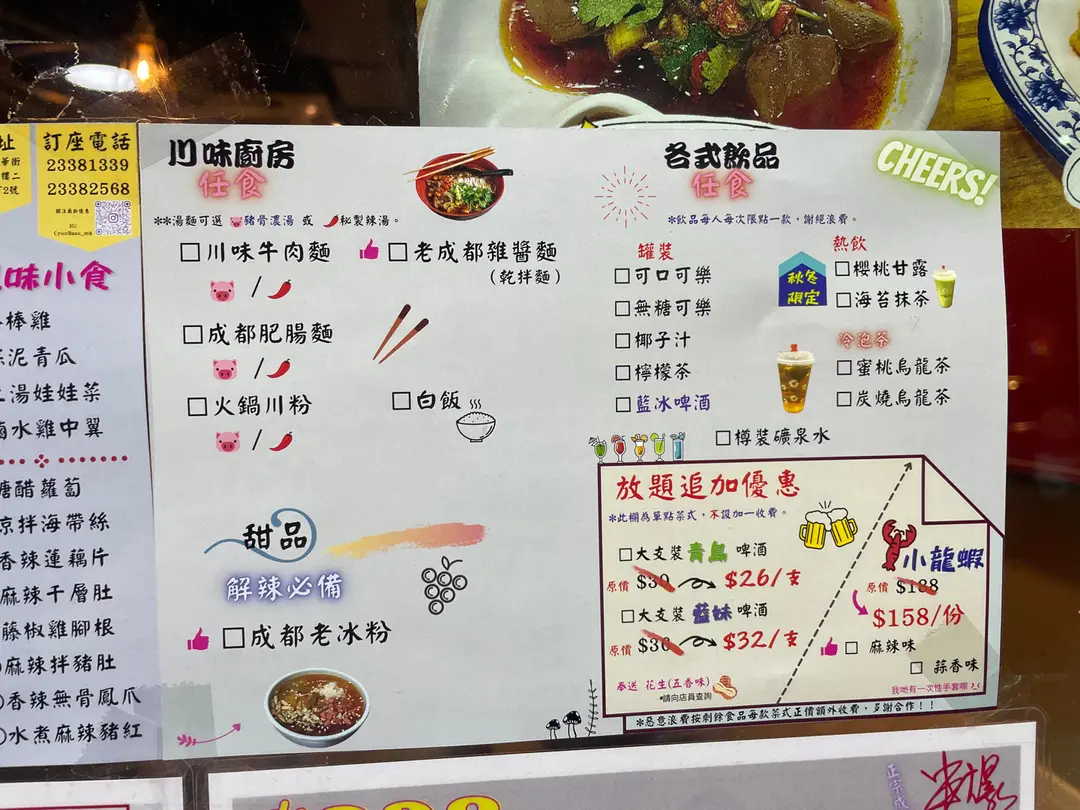 址
訂座電話
23381339
23382568
味小食
棒雞
泥青瓜
湯娃娃菜
水雞中翼
糖醋蘿蔔
涼拌海帶絲
香辣蓮藕片
麻辣千層肚
藤椒雞腳根
麻辣拌豬肚
香辣無骨鳳爪
水煮麻辣豬紅
川味廚房
任食
**湯麵可選 豬骨濃湯 或 秘製辣湯。
川味牛肉麵
/
老成都雜醬麵
(乾拌麵)
成都肥腸麵
/
火鍋川粉
/
白飯
甜品
解辣必備
成都老冰粉
各式飲品
任食
CHEERS!
*飲品每人每次限點一款,謝絕浪費。
罐裝
可口可樂
無糖可樂
椰子汁
檸檬茶
藍冰啤酒
樽裝礦泉水
熱飲
秋冬
限定
櫻桃甘露
海苔抹茶
冷泡茶
蜜桃烏龍茶
炭燒烏龍茶
放題追加優惠
*此欄為單點菜式,不設加一收費。
大支裝 青島 啤酒
原價 $30 $26/支
大支裝 藍妹 啤酒
原價 $36 $32/支
奉送 花生(五香味)
*請向店員查詢
小龍蝦
原價 $188
$158/份
麻辣味
蒜香味
我哋有一次性手套㗎
*惡意浪費按剩餘食品每款菜式正價額外收費,多謝合作!!